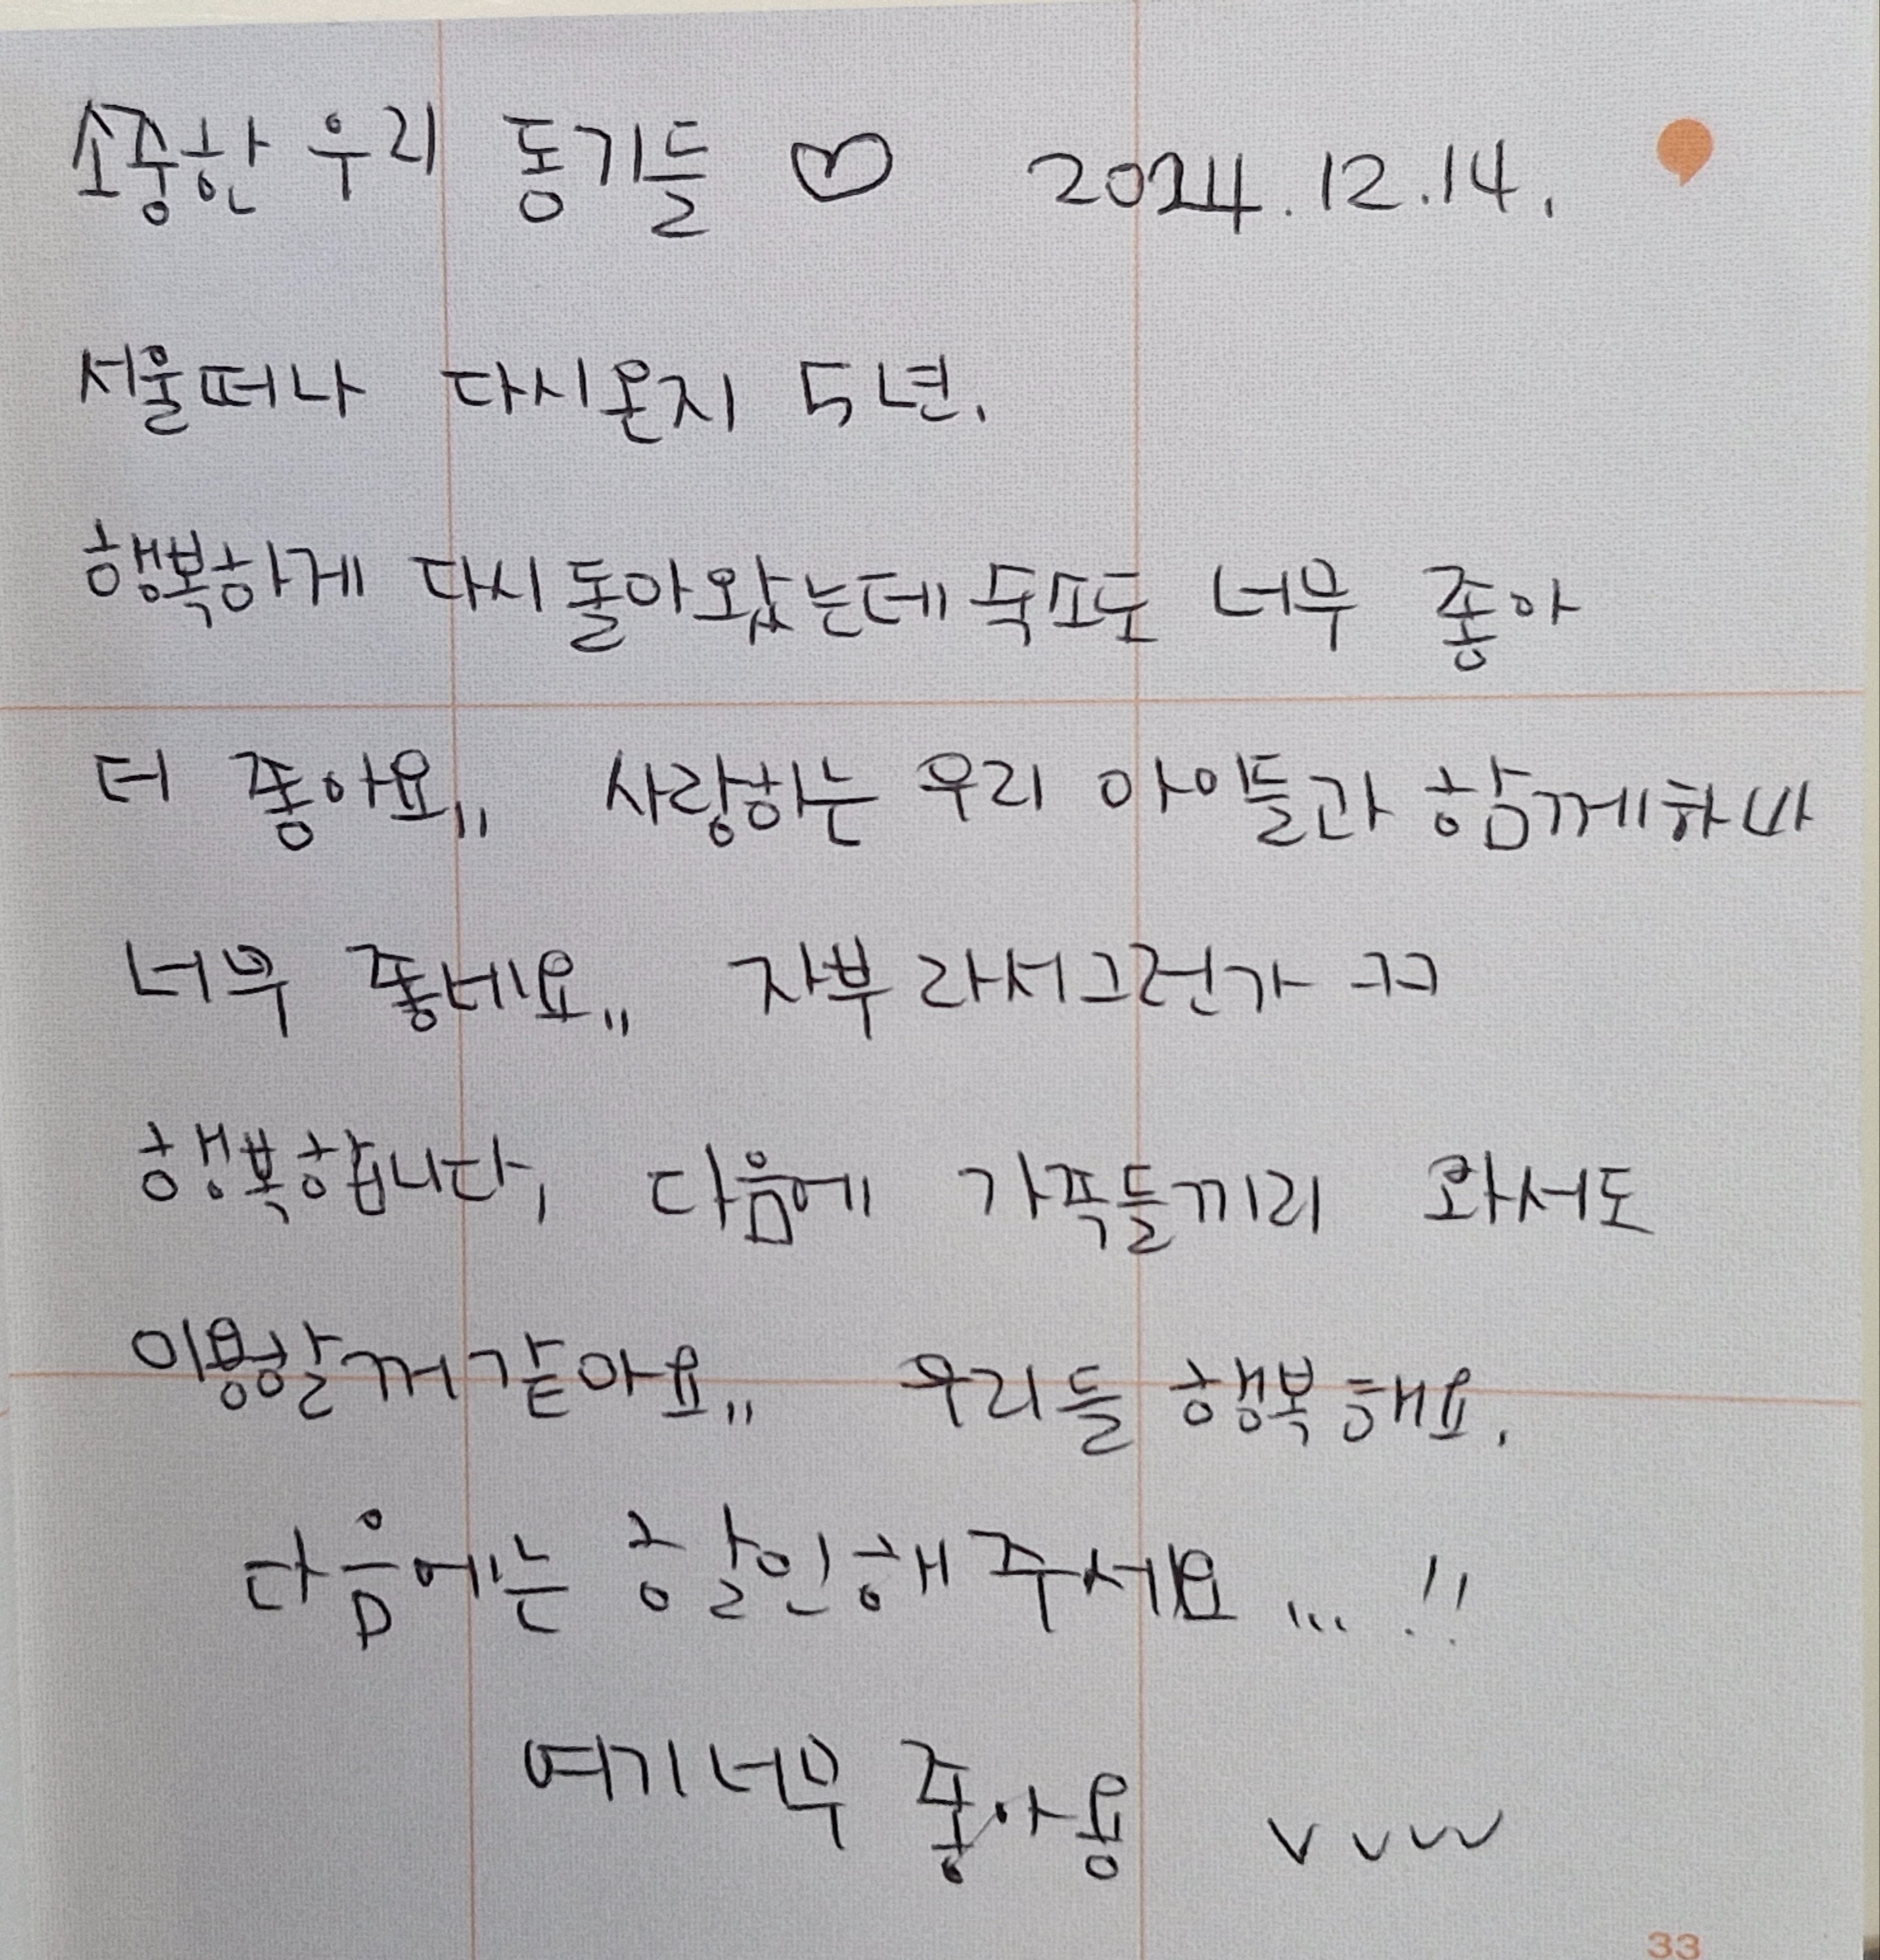 소중한 우리 동기들 ♡ 2024.12.14.
서울떠나 다시온지 5년.
행복하게 다시돌아왔는데 숙소도 너무 좋아
더 좋아요,, 사랑하는 우리 아이들과 함께하니
너무 좋네요,, 자부라서그런가 ㅋㅋ
행복합니다, 다음에 가족들끼리 와서도
이용할꺼같아요,, 우리들 행복해요.
다음에는 할인해 주세요...!!
여기너무 좋아용 vvvv
33